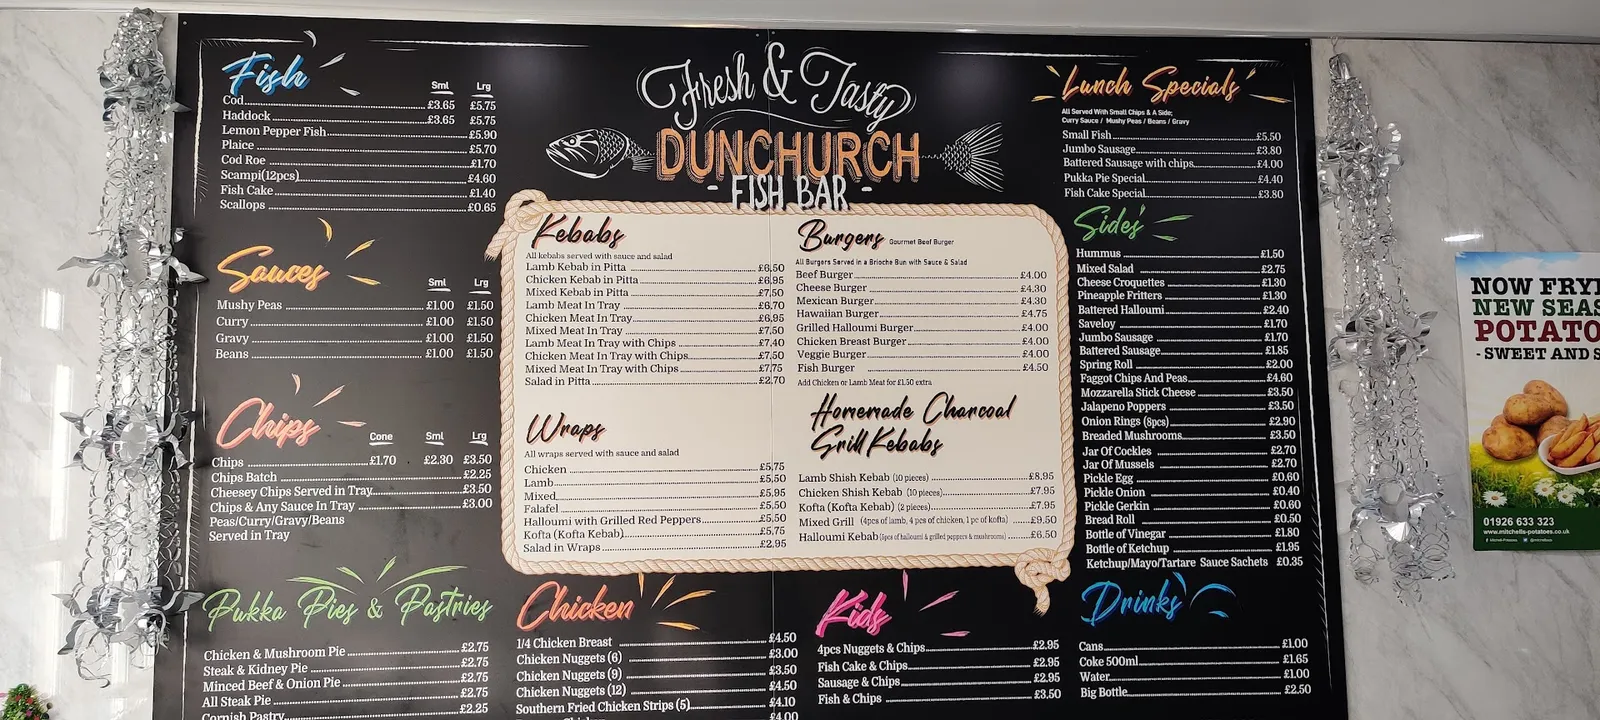 Fresh & Tasty
DUNCHURCH
- FISH BAR -
Fish
Sml Lrg
Cod £3.65 £5.75
Haddock £3.65 £5.75
Lemon Pepper Fish £5.90
Plaice £5.70
Cod Roe £1.70
Scampi(12pcs) £4.60
Fish Cake £1.40
Scallops £0.65
Sauces
Sml Lrg
Mushy Peas £1.00 £1.50
Curry £1.00 £1.50
Gravy £1.00 £1.50
Beans £1.00 £1.50
Chips
Cone Sml Lrg
Chips £1.70 £2.30 £3.50
Chips Batch £2.25
Cheesey Chips Served in Tray £3.50
Chips & Any Sauce In Tray £3.00
Peas/Curry/Gravy/Beans
Served in Tray
Pukka Pies & Pastries
Chicken & Mushroom Pie £2.75
Steak & Kidney Pie £2.75
Minced Beef & Onion Pie £2.75
All Steak Pie £2.75
Cornish Pastry £2.25
Kebabs
All kebabs served with sauce and salad
Lamb Kebab in Pitta £6.50
Chicken Kebab in Pitta £6.95
Mixed Kebab in Pitta £7.50
Lamb Meat In Tray £6.70
Chicken Meat In Tray £6.95
Mixed Meat In Tray £7.50
Lamb Meat In Tray with Chips £7.40
Chicken Meat In Tray with Chips £7.50
Mixed Meat In Tray with Chips £7.75
Salad in Pitta £2.70
Wraps
All wraps served with sauce and salad
Chicken £5.75
Lamb £5.50
Mixed £5.95
Falafel £5.50
Halloumi with Grilled Red Peppers £5.50
Kofta (Kofta Kebab) £5.75
Salad in Wraps £2.95
Burgers Gourmet Beef Burger
All Burgers Served in a Brioche Bun with Sauce & Salad
Beef Burger £4.00
Cheese Burger £4.30
Mexican Burger £4.30
Hawaiian Burger £4.75
Grilled Halloumi Burger £4.00
Chicken Breast Burger £4.00
Veggie Burger £4.00
Fish Burger £4.50
Add Chicken or Lamb Meat for £1.50 extra
Homemade Charcoal
Grill Kebabs
Lamb Shish Kebab (10 pieces) £8.95
Chicken Shish Kebab (10 pieces) £7.95
Kofta (Kofta Kebab) (2 pieces) £7.95
Mixed Grill (4pcs of lamb, 4 pcs of chicken, 1 pc of kofta) £9.50
Halloumi Kebab (5pcs of halloumi & grilled peppers & mushrooms) £6.50
Chicken
1/4 Chicken Breast £4.50
Chicken Nuggets (6) £3.00
Chicken Nuggets (9) £3.50
Chicken Nuggets (12) £4.50
Southern Fried Chicken Strips (5) £4.10
£4.00
Kids
4pcs Nuggets & Chips £2.95
Fish Cake & Chips £2.95
Sausage & Chips £2.95
Fish & Chips £3.50
Lunch Specials
All Served With Small Chips & A Side;
Curry Sauce / Mushy Peas / Beans / Gravy
Small Fish £5.50
Jumbo Sausage £3.80
Battered Sausage with chips £4.00
Pukka Pie Special £4.40
Fish Cake Special £3.80
Sides
Hummus £1.50
Mixed Salad £2.75
Cheese Croquettes £1.30
Pineapple Fritters £1.30
Battered Halloumi £2.40
Saveloy £1.70
Jumbo Sausage £1.70
Battered Sausage £1.85
Spring Roll £2.00
Faggot Chips And Peas £4.60
Mozzarella Stick Cheese £3.50
Jalapeno Poppers £3.50
Onion Rings (8pcs) £2.90
Breaded Mushrooms £3.50
Jar Of Cockles £2.70
Jar Of Mussels £2.70
Pickle Egg £0.60
Pickle Onion £0.40
Pickle Gerkin £0.60
Bread Roll £0.50
Bottle of Vinegar £1.80
Bottle of Ketchup £1.95
Ketchup/Mayo/Tartare Sauce Sachets £0.35
Drinks
Cans £1.00
Coke 500ml £1.65
Water £1.00
Big Bottle £2.50
NOW FRYI
NEW SEAS
POTATO
- SWEET AND S
01926 633 323
www.mitchells-potatoes.co.uk